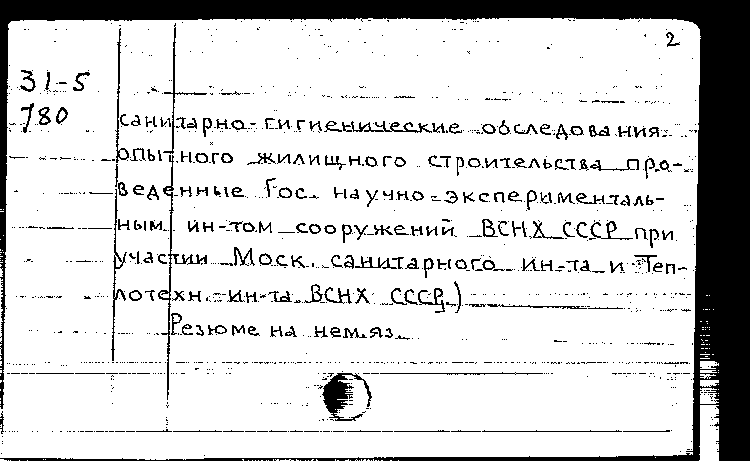 2
31-5
780
санитарно-гигиенические обследования
опытного жилищного строительства про-
веденные Гос. научно-эксперименталь-
ным ин-том сооружений ВСНХ СССР при
участии Моск. санитарного ин-та и Теп-
лотехн. ин-та ВСНХ СССР.)
Резюме на нем.яз.